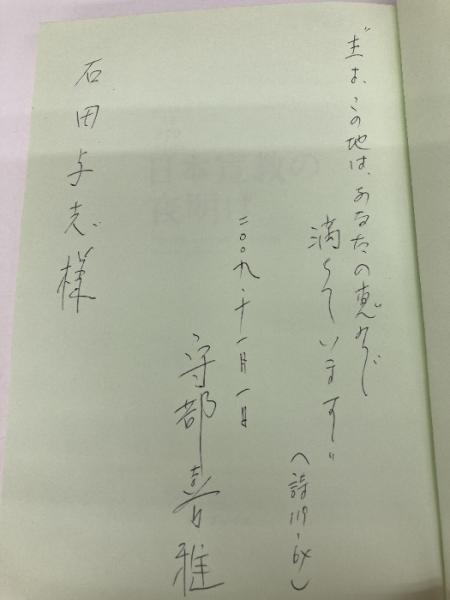 “主よ、この地は、あなたの恵みで
満ちています”
（詩119・64）
二〇〇九・十一月一日
守部喜雅
石田与志様
日本宣教の
夜明け